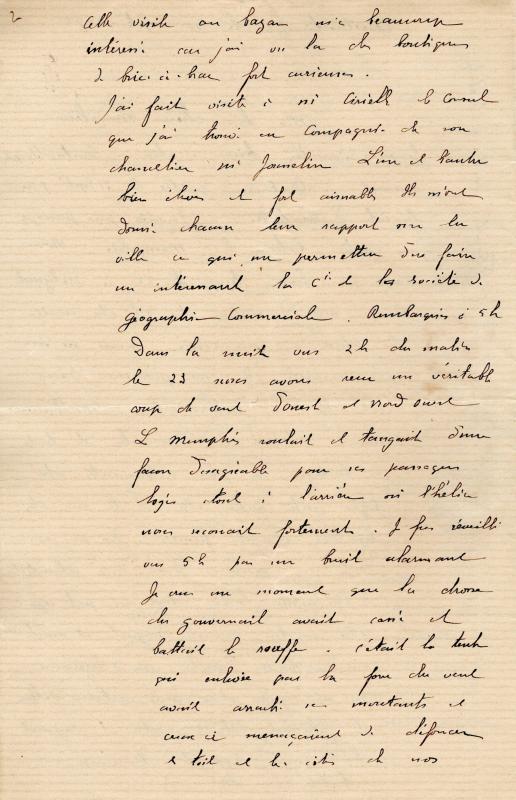 2
Cette visite au bazar m'a beaucoup
intéressé car j'ai vu là des boutiques
de bric-à-brac fort curieuses.
J'ai fait visite à Mr le Consul
que j'ai trouvé en compagnie de son
chancelier Mr Josselin L'un et l'autre
bien élevés et fort aimables Ils m'ont
donné chacun leur rapport sur la
ville ce qui me permettra d'en faire
un intéressant à la Cie de la Société de
géographie Commerciale. Rembarqués à 5h
Dans la nuit vers 2h du matin
le 23 nous avons reçu un véritable
coup de vent d'ouest et nord ouest
Le Memphis roulait et tanguait d'une
façon désagréable pour ses passagers
logés à l'arrière où l'hélice
nous secouait fortement. Je fus réveillé
vers 5h par un bruit alarmant
Je crus un moment que la drosse
du gouvernail avait cassé et
battait le . c'était la tente
qui enlevée par la force du vent
avait arraché ses montants et
ceux ci menaçaient de défoncer
le toit et les côtés de nos